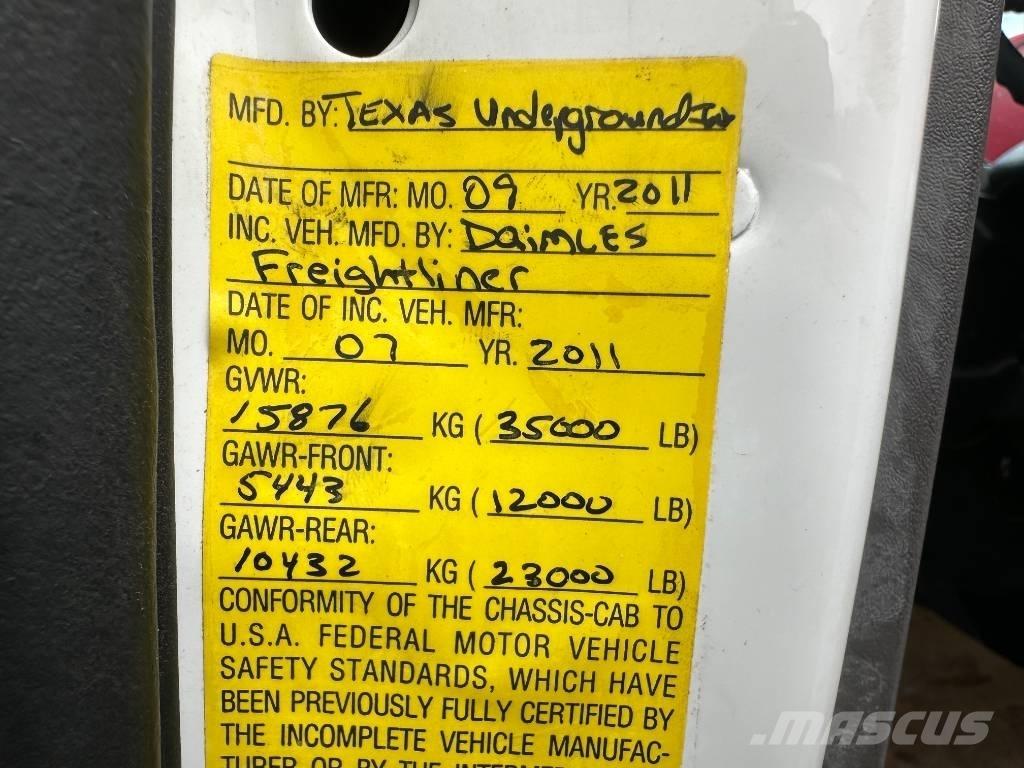 MFD. BY: TEXAS Underground Inc
DATE OF MFR: MO. 09 YR. 2011
INC. VEH. MFD. BY: DaimLES
Freightliner
DATE OF INC. VEH. MFR:
MO. 07 YR. 2011
GVWR:
15876 KG (35000 LB)
GAWR-FRONT:
5443 KG (12000 LB)
GAWR-REAR:
10432 KG (23000 LB)
CONFORMITY OF THE CHASSIS-CAB TO
U.S.A. FEDERAL MOTOR VEHICLE
SAFETY STANDARDS, WHICH HAVE
BEEN PREVIOUSLY FULLY CERTIFIED BY
THE INCOMPLETE VEHICLE MANUFAC-
TURER OR BY THE INTERMED
MASCUS